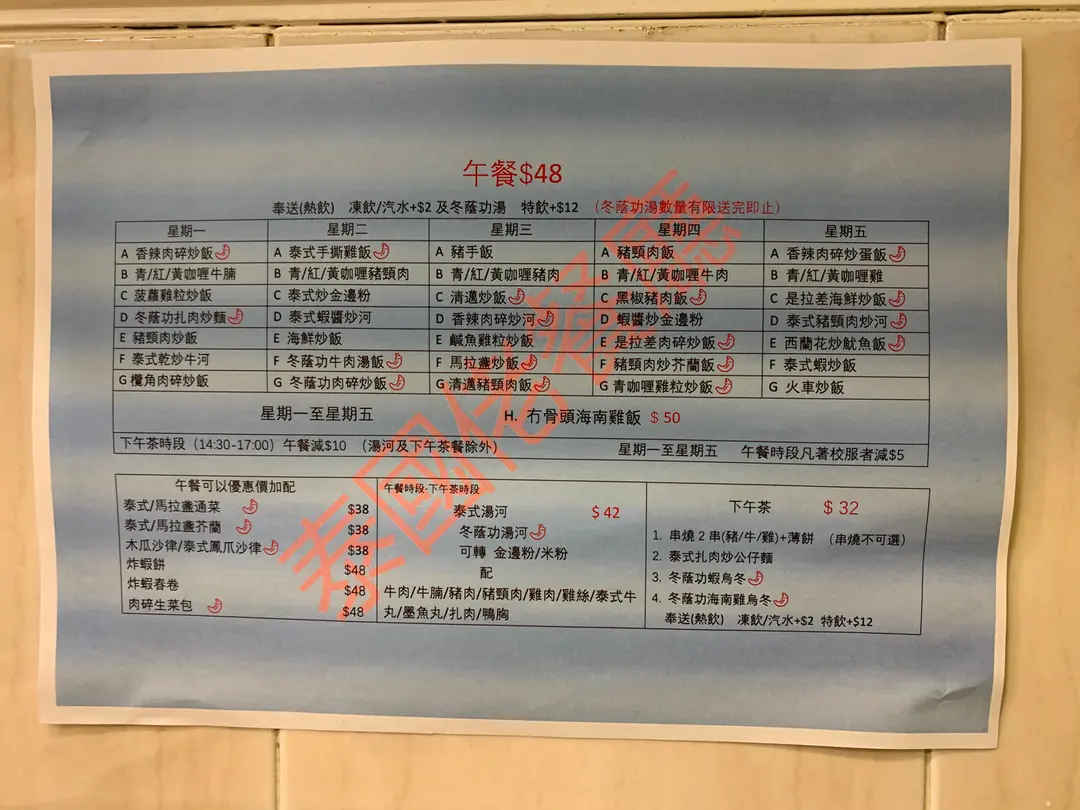 午餐$48
奉送(熱飲) 凍飲/汽水+$2 及冬蔭功湯 特飲+$12 (冬蔭功湯數量有限送完即止)
星期一 星期二 星期三 星期四 星期五
A 香辣肉碎炒飯 A 泰式手撕雞飯 A 豬手飯 A 豬頸肉飯 A 香辣肉碎炒蛋飯
B 青/紅/黃咖喱牛腩 B 青/紅/黃咖喱豬頸肉 B 青/紅/黃咖喱豬肉 B 青/紅/黃咖喱牛肉 B 青/紅/黃咖喱雞
C 菠蘿雞粒炒飯 C 泰式炒金邊粉 C 清邁炒飯 C 黑椒豬肉飯 C 是拉差海鮮炒飯
D 冬蔭功扎肉炒麵 D 泰式蝦醬炒河 D 香辣肉碎炒河 D 蝦醬炒金邊粉 D 泰式豬頸肉炒河
E 豬頸肉炒飯 E 海鮮炒飯 E 鹹魚雞粒炒飯 E 是拉差肉碎炒飯 E 西蘭花炒魷魚飯
F 泰式乾炒牛河 F 冬蔭功牛肉湯飯 F 馬拉盞炒飯 F 豬頸肉炒芥蘭飯 F 泰式蝦炒飯
G 欖角肉碎炒飯 G 冬蔭功肉碎炒飯 G 清邁豬頸肉飯 G 青咖喱雞粒炒飯 G 火車炒飯
星期一至星期五 H. 冇骨頭海南雞飯 $ 50
下午茶時段 (14:30-17:00) 午餐減$10 (湯河及下午茶餐除外) 星期一至星期五 午餐時段凡著校服者減$5
午餐可以優惠價加配
泰式/馬拉盞通菜 $38
泰式/馬拉盞芥蘭 $38
木瓜沙律/泰式鳳爪沙律 $38
炸蝦餅 $48
炸蝦春卷 $48
肉碎生菜包 $48
午餐時段-下午茶時段
泰式湯河 $ 42
冬蔭功湯河
可轉 金邊粉/米粉
配
牛肉/牛腩/豬肉/豬頸肉/雞肉/雞絲/泰式牛
丸/墨魚丸/扎肉/鴨胸
下午茶 $ 32
1. 串燒 2 串(豬/牛/雞)+薄餅 (串燒不可選)
2. 泰式扎肉炒公仔麵
3. 冬蔭功蝦烏冬
4. 冬蔭功海南雞烏冬
奉送(熱飲) 凍飲/汽水+$2 特飲+$12
泰國佬餐廳